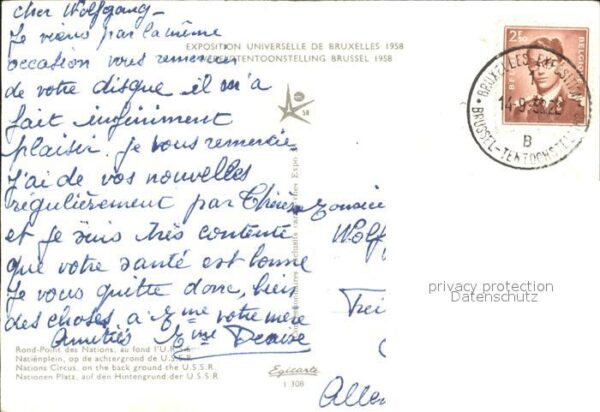 cher Wolfgang -
Je viens par la même
occasion vous remercier
de votre disque il m'a
fait infiniment
plaisir. je vous remercie
J'ai de vos nouvelles
régulièrement par Thérèse
et je suis très contente
que votre santé est bonne
Je vous quitte donc, bien
des choses à Mme votre mère
Amitiés Mme
EXPOSITION UNIVERSELLE DE BRUXELLES 1958
WERELDTENTOONSTELLING BRUSSEL 1958
58
2F50
BELGIE
BRUXELLES
14-9-58
B
BRUSSEL-TENTOONSTELLING
Wolf
privacy protection
Datenschutz
Allem
Rond-Point des Nations, au fond l'U.R.S.S.
Natiënplein, op de achtergrond de U.S.S.R.
Nations Circus, on the back ground the U.S.S.R.
Nationen Platz, auf den Hintergrund der U.S.S.R.
Egicarte
1 308